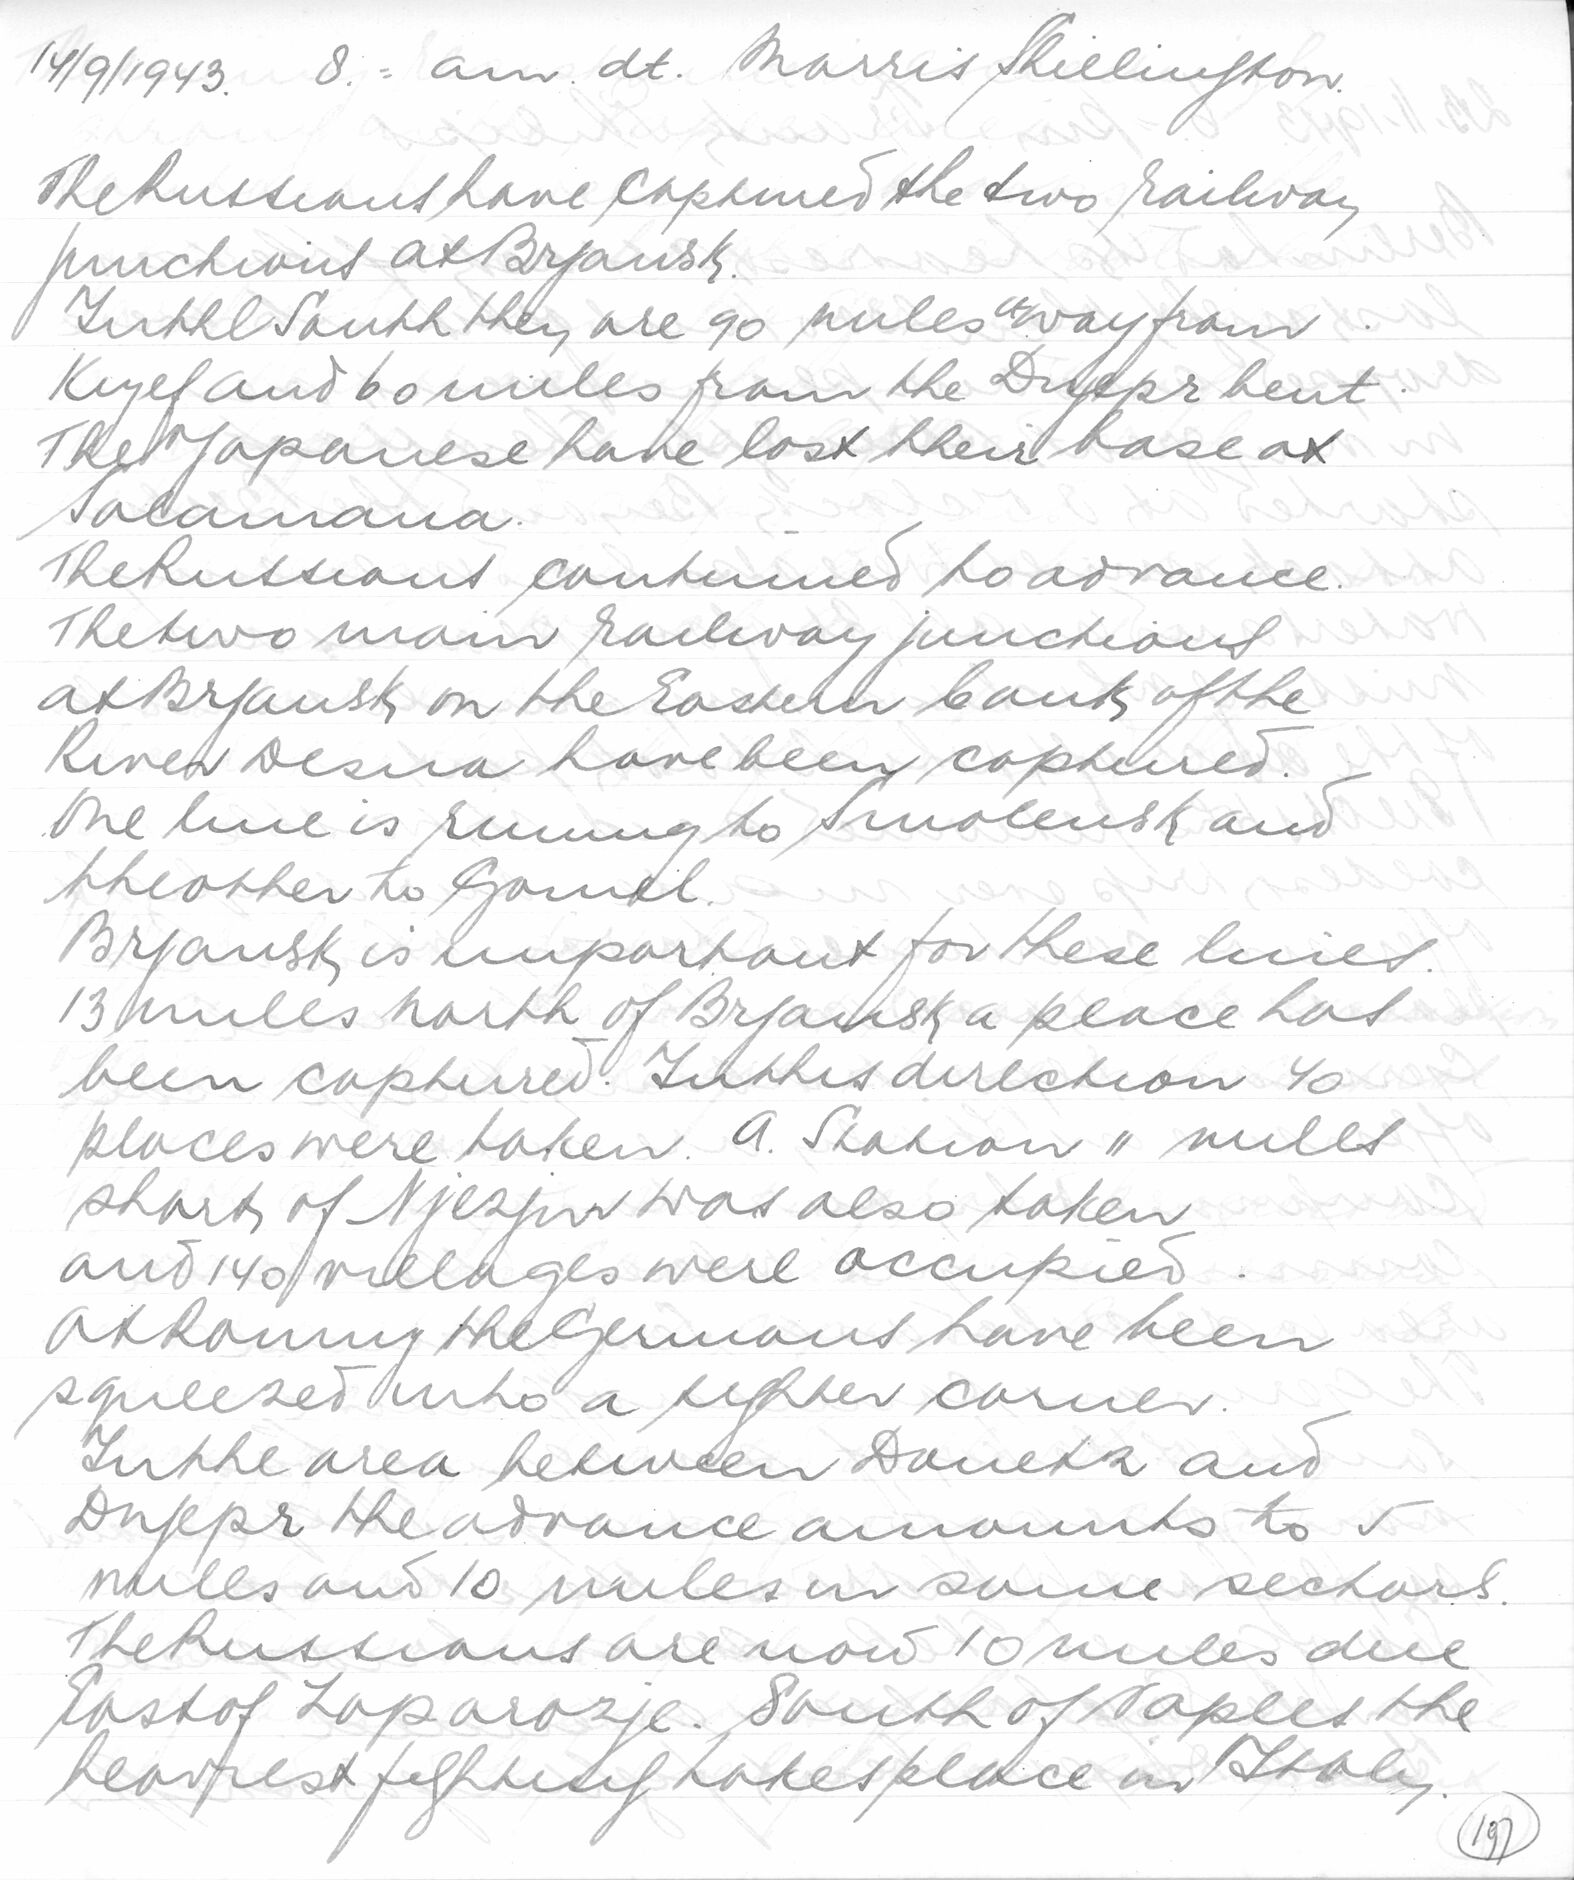 14/9/1943. 8.= am. dt. Morris Shillington.
The Russians have captured the two railway
junctions at Brjansk.
In the South they are 90 miles away from
Kiyef and 60 miles from the Dnjepr bent.
The Japanese have lost their base at
Salamana.
The Russians continued to advance.
The two main railway junctions
at Brjansk on the Eastern bank of the
River Desna have been captured.
One line is runing to Smolensk and
the other to Gomel.
Brjansk is important for these lines.
13 miles north of Brjansk a place has
been captured. In this direction 40
places were taken. A. Station 11 miles
short of Njezjin was also taken
and 140 villages were occupied.
At Romny the Germans have been
squeezed into a tighter corner.
In the area between Donetz and
Dnjepr the advance amounts to 5
miles and 10 miles in some sectors.
The Russians are now 10 miles due
East of Zaporozje. South of Naples the
heaviest fighting takes place in Italy.
197